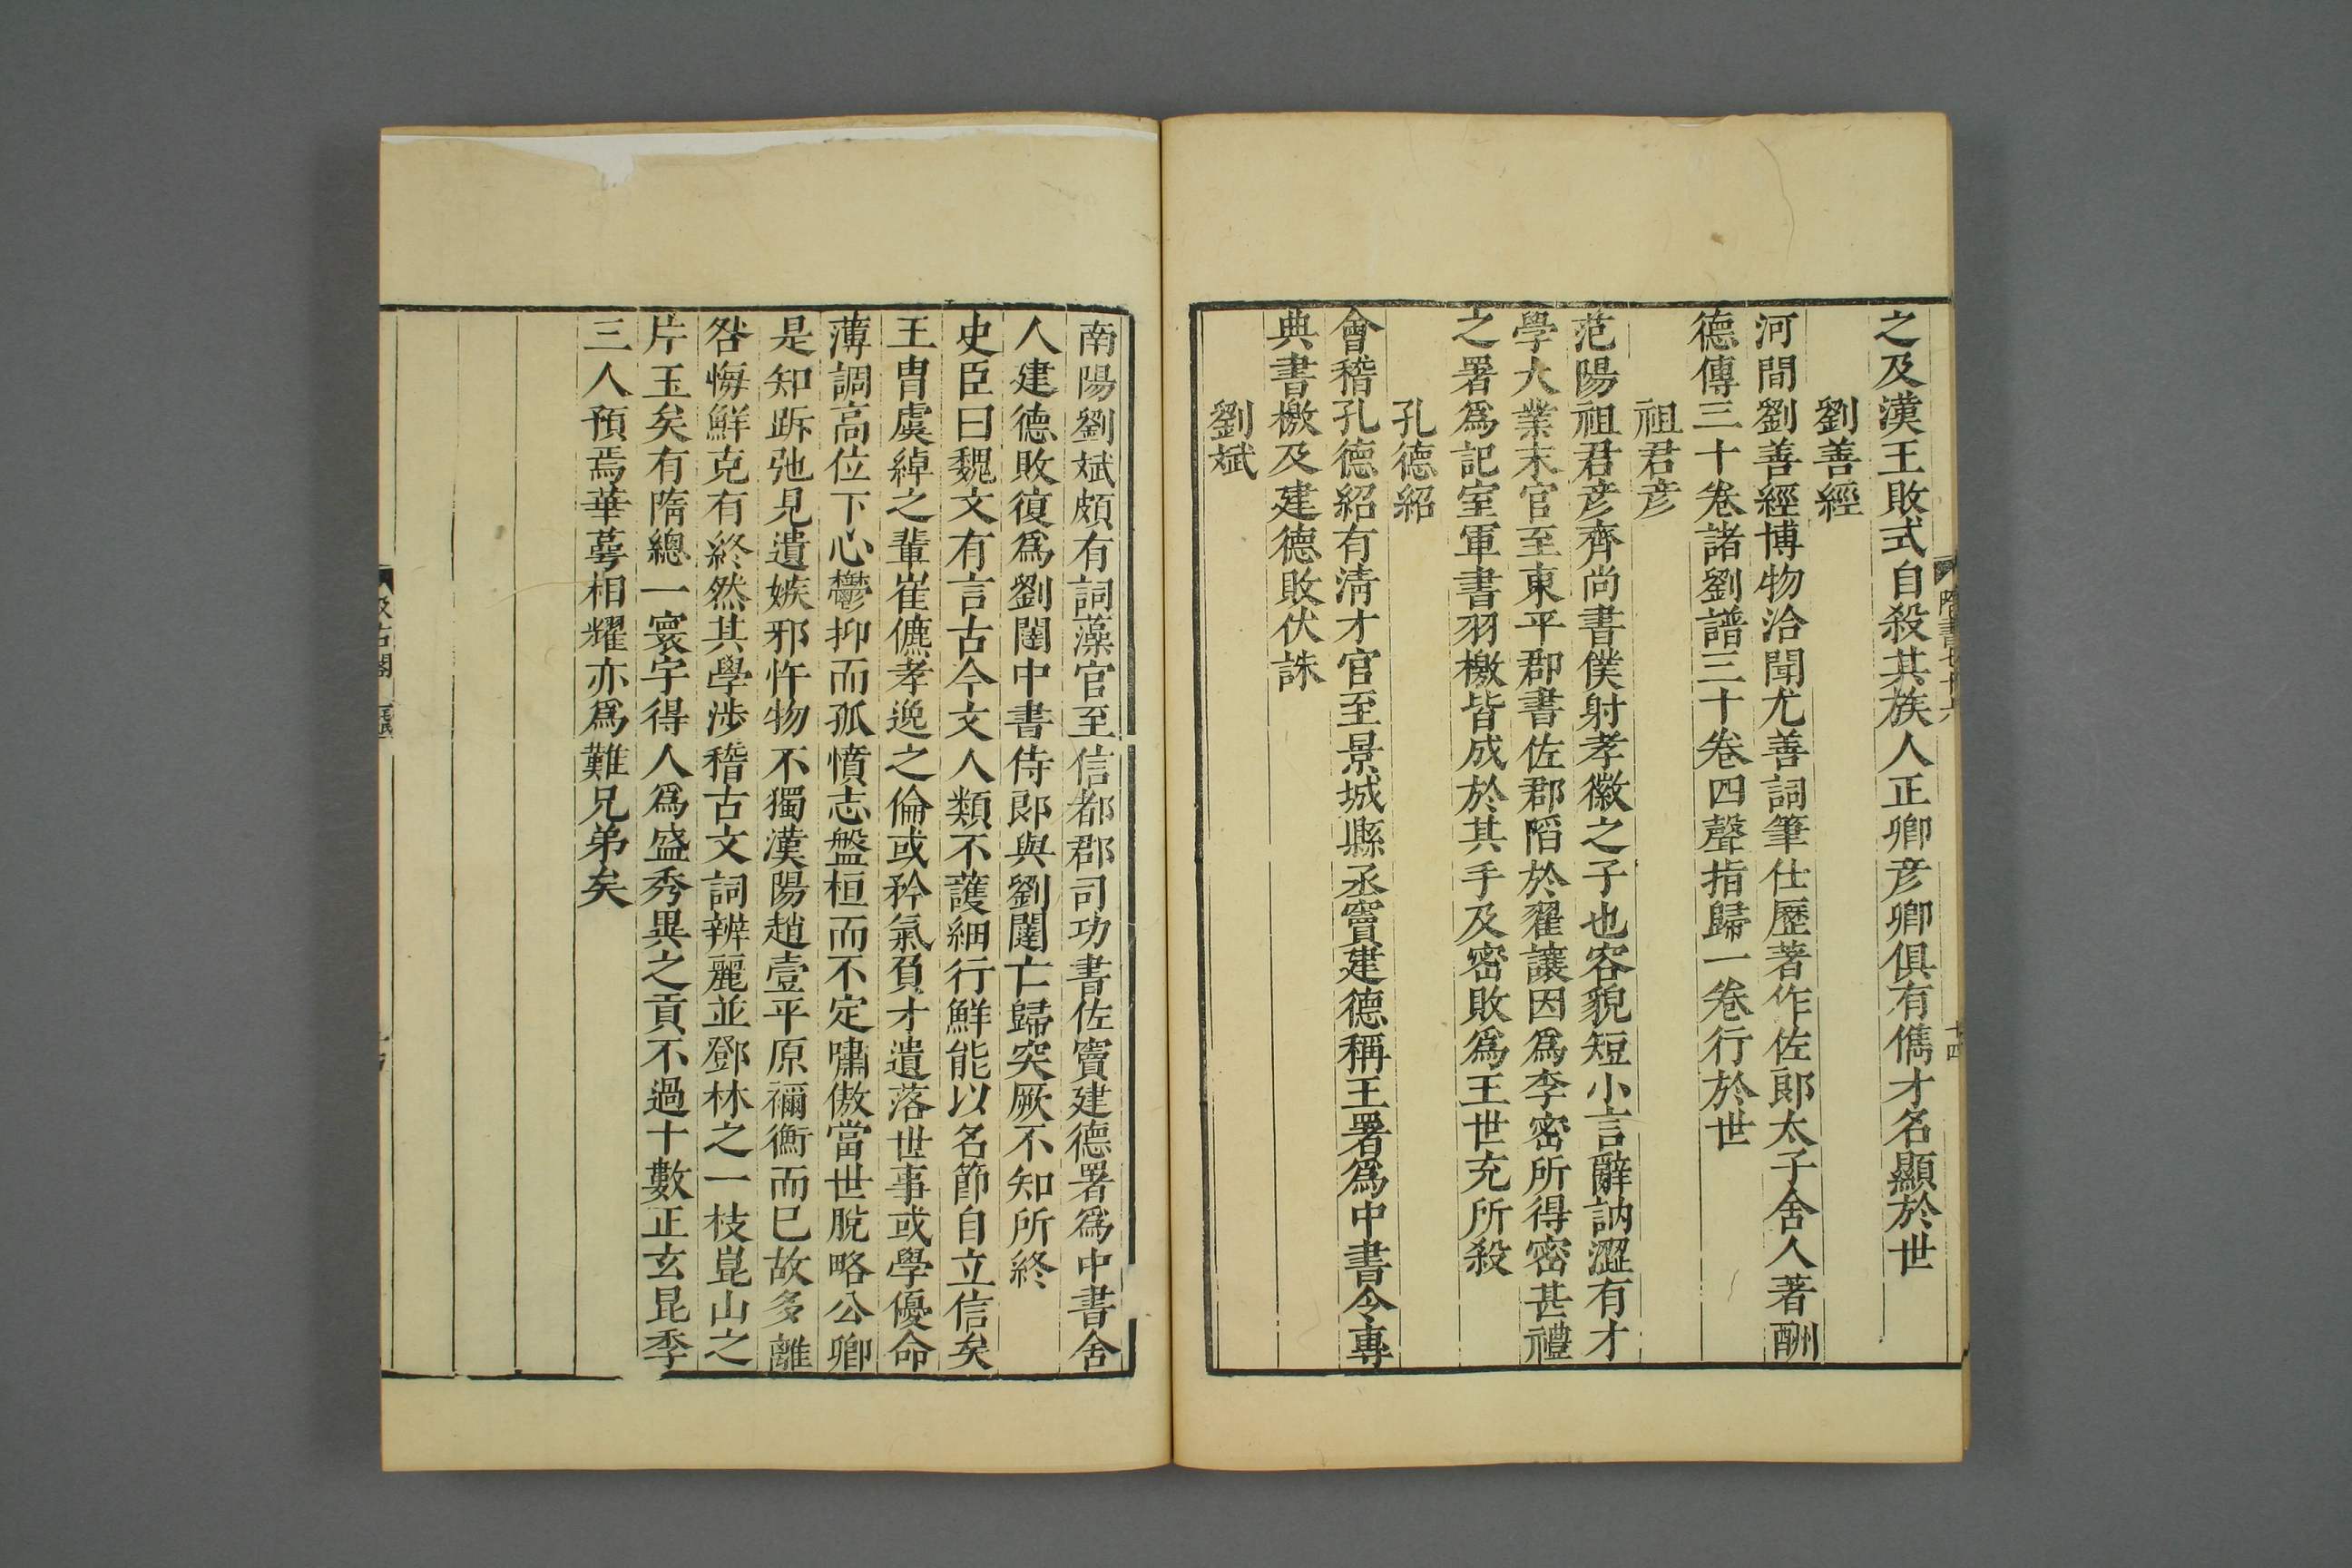 之及漢王敗式自殺其族人正卿彦卿俱有儁才名顯於世
劉善經
河間劉善經博物洽聞尤善詞筆仕歷著作佐郎太子舍人著酬
德傳三十卷諸劉譜三十卷四聲指歸一卷行於世
祖君彦
范陽祖君彦齊尚書僕射孝徽之子也容貌短小言辭訥澀有才
學大業末官至東平郡書佐郡陷於翟讓因爲李密所得密甚禮
之署爲記室軍書羽檄皆成於其手及密敗爲王世充所殺
孔德紹
會稽孔德紹有淸才官至景城縣丞竇建德稱王署爲中書令專
典書檄及建德敗伏誅
劉斌
南陽劉斌頗有詞藻官至信都郡司功書佐竇建德署爲中書舍
人建德敗復爲劉闥中書侍郎與劉闥亡歸突厥不知所終
史臣曰魏文有言古今文人類不護細行鮮能以名節自立信矣
王胄虞綽之輩崔儦孝逸之倫或矜氣負才遺落世事或學優命
薄調高位下心鬱抑而孤憤志盤桓而不定嘯傲當世脫略公卿
是知跅弛見遺嫉邪忤物不獨漢陽趙壹平原禰衡而已故多離
咎悔鮮克有終然其學涉稽古文詞辨麗並鄧林之一枝崑山之
片玉矣有隋總一寰宇得人爲盛秀異之貢不過十數正玄昆季
三人預焉華萼相耀亦爲難兄弟矣